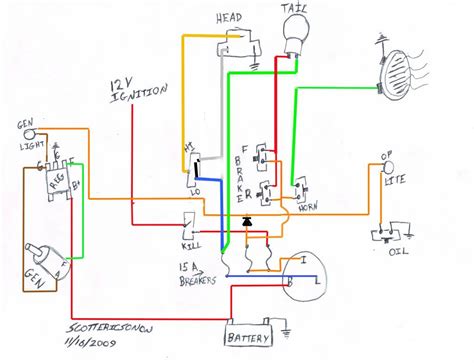 HEAD
TAIL
12V
IGNITION
GEN
LIGHT
HI
LO
F
BRAKE
R
OP
LITE
G
F
REG
B+
HORN
KILL
OIL
F
A
GEN
15A
BREAKERS
I
B
L
SCOTTERICSONON
11/18/2009
BATTERY